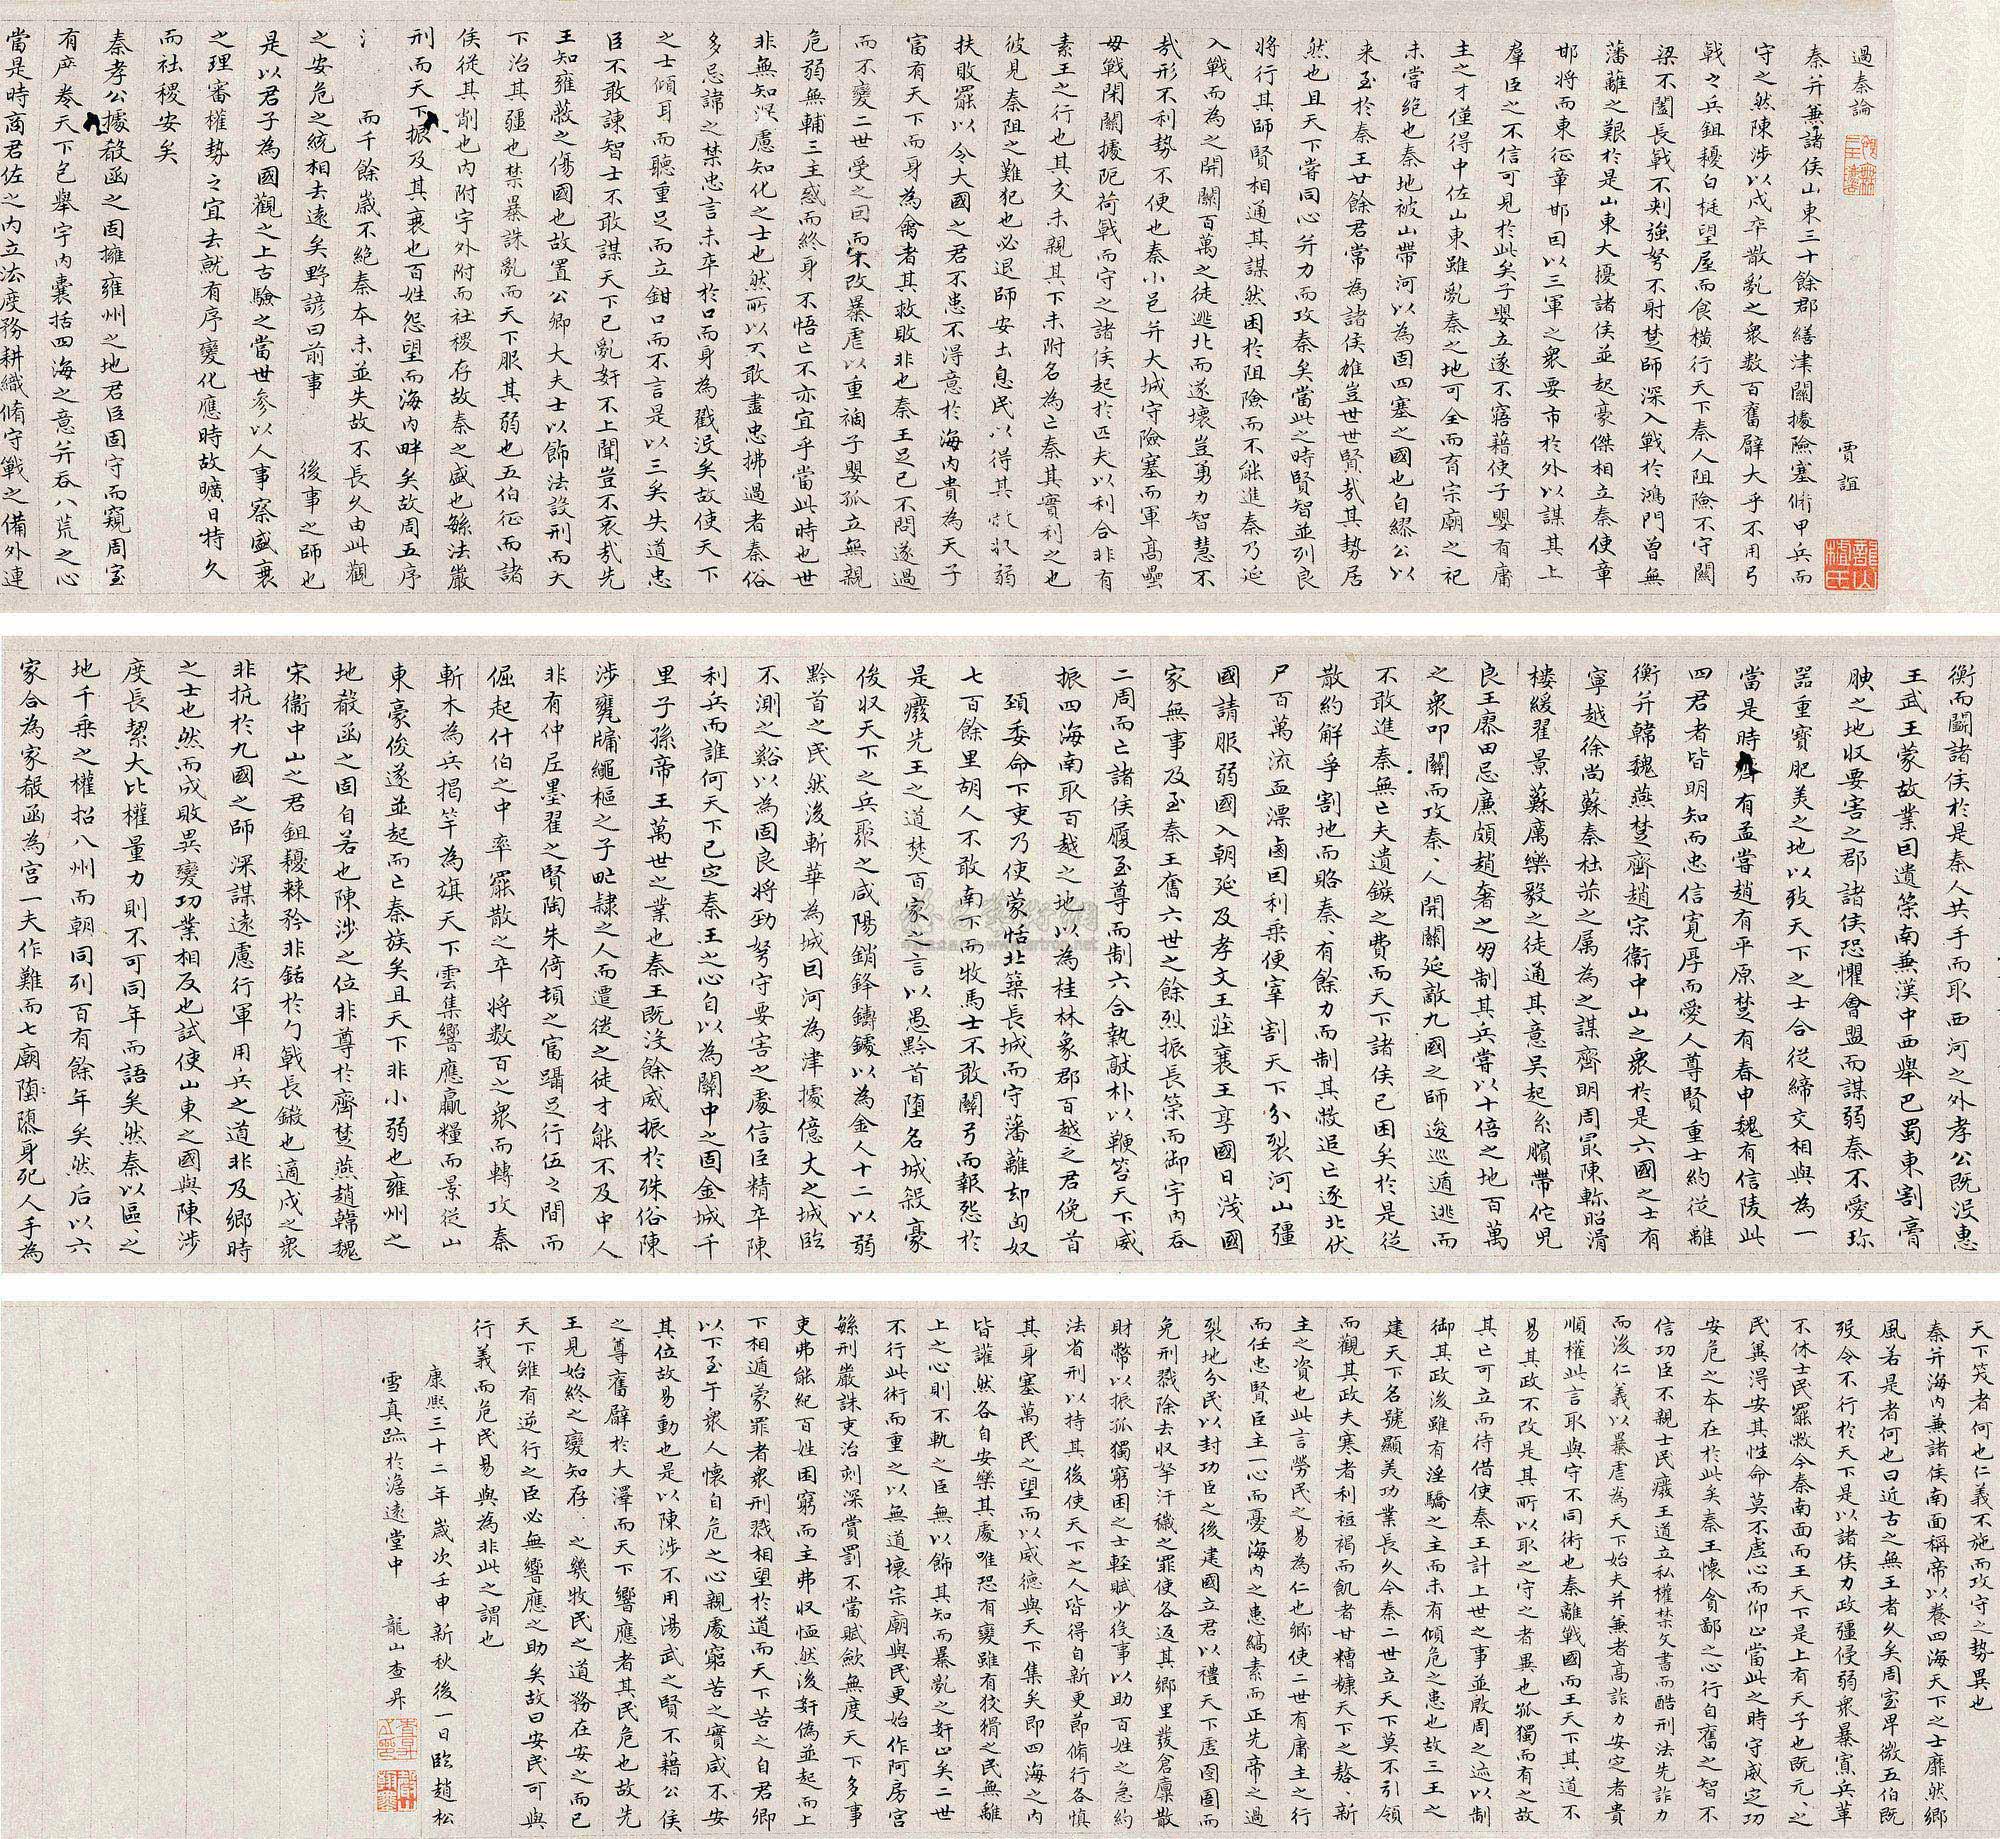 過秦論
賈誼
秦并兼諸侯山東三十餘郡繕津關據險塞脩甲兵而
守之然陳涉以戍卒散亂之衆數百奮臂大乎不用弓
戟之兵鉏耰白梃望屋而食橫行天下秦人阻險不守關
梁不闔長戟不刺強弩不射楚師深入戰於鴻門曾無
藩籬之艱於是山東大擾諸侯並起豪傑相立秦使章
邯將而東征章邯因以三軍之衆要市於外以謀其上
羣臣之不信可見於此矣子嬰立遂不寤藉使子嬰有庸
主之才僅得中佐山東雖亂秦之地可全而有宗廟之祀
未當絕也秦地被山帶河以為固四塞之國也自繆公以
来至於秦王廿餘君常為諸侯雄豈世世賢哉其勢居
然也且天下嘗同心并力而攻秦矣當此之時賢智並列良
將行其師賢相通其謀然困於阻險而不能進秦乃延
入戰而為之開關百萬之徒逃北而遂壞豈勇力智慧不
哉形不利勢不便也秦小邑并大城守險塞而軍高壘
毋戰閉關據阨荷戟而守之諸侯起於匹夫以利合非有
素王之行也其交未親其下未附名為亡秦其實利之也
彼見秦阻之難犯也必退師安土息民以得其敝收弱
扶敗罷以令大國之君不患不得意於海内貴為天子
富有天下而身為禽者其救敗非也秦王足已不問遂過
而不變二世受之因而不改暴虐以重禍子嬰孤立無親
危弱無輔三主惑而終身不悟亡不亦宜乎當此時也世
非無知深慮知化之士也然所以不敢盡忠拂過者秦俗
多忌諱之禁忠言未卒於口而身為戮没矣故使天下
之士傾耳而聽重足而立鉗口而不言是以三矣失道忠
臣不敢諫智士不敢謀天下已亂奸不上聞豈不哀哉先
王知雍蔽之傷國也故置公卿大夫士以飾法設刑而天
下治其彊也禁暴誅亂而天下服其弱也五伯征而諸
侯從其削也内附字外附而社稷存故秦之盛也緐法嚴
刑而天下振及其衰也百姓怨望而海内畔矣故周五序
而千餘歲不絕秦本未並失故不長久由此觀
之安危之統相去遠矣野諺曰前事 後事之師也
是以君子為國觀之上古驗之當世參以人事察盛衰
之理審權勢之宜去就有序變化應時故曠日特久
而社稷安矣
秦孝公據殽函之固擁雍州之地君臣固守而窺周室
有席卷天下包舉宇内囊括四海之意并吞八荒之心
當是時商君佐之内立法度務耕織脩守戰之備外連
衡而鬭諸侯於是秦人共手而取西河之外孝公既没惠
王武王蒙故業因遺筞南兼漢中西舉巴蜀東割膏
腴之地收要害之郡諸侯恐懼會盟而謀弱秦不愛珎
噐重寶肥美之地以致天下之士合從締交相與為一
當是時齊有孟嘗趙有平原楚有春申魏有信陵此
四君者皆明知而忠信寬厚而愛人尊賢重士約從離
衡并韓魏燕楚齊趙宗衞中山之衆於是六國之士有
寧越徐尚蘇秦杜赫之属為之謀齊明周冣陳軫昭滑
樓緩翟景蘇厲樂毅之徒通其意吴起糸臏帶佗兒
良王廖田忌廉頗趙奢之朋制其兵嘗以十倍之地百萬
之衆叩關而攻秦、人開關延敵九國之師逡巡遁逃而
不敢進秦無亡夫遺鏃之費而天下諸侯已困矣於是從
散約解爭割地而賂秦、有餘力而制其敝追亡逐北伏
尸百萬流血漂鹵因利乗便宰割天下分裂河山彊
國請服弱國入朝延及孝文王莊襄王享國日淺國
家無事及至秦王奮六世之餘烈振長筞而御宇内吞
二周而亡諸侯履至尊而制六合執敲朴以鞭笞天下威
振四海南取百越之地以為桂林象郡百越之君俛首
頚委命下吏乃使蒙恬北築長城而守藩離却匈奴
七百餘里胡人不敢南下而牧馬士不敢關弓而報怨於
是癈先王之道焚百家之言以愚黔首墮名城殺豪
俊収天下之兵聚之咸陽銷鋒鑄鐻以為金人十二以弱
黔首之民然後斬華為城因河為津據億丈之城臨
不測之谿以為固良將勁弩守要害之處信臣精卒陳
利兵而誰何天下已定秦王之心自以為關中之固金城千
里子孫帝王萬世之業也秦王既没餘威振於殊俗陳
涉甕牖繩樞之子甿隷之人而遷徙之徒才能不及中人
非有仲尼墨翟之賢陶朱倚頓之富躡足行伍之間而
倔起什伯之中率罷散之卒將数百之衆而轉攻秦
斬木為兵揭竿為旗天下雲集響應贏糧而景從山
東豪俊遂並起而亡秦族矣且天下非小弱也雍州之
地殽函之固自若也陳涉之位非尊於齊楚燕趙韓魏
宋衞中山之君鉏耰棘矜非銛於勾戟長鎩也適戍之衆
非抗於九國之師深謀遠慮行軍用兵之道非及鄉時
之士也然而成敗異變功業相反也試使山東之國與陳涉
度長絜大比權量力則不可同年而語矣然秦以區之
地千乗之權招八州而朝同列百有餘年矣然后以六
家合為家殽函為宫一夫作難而七廟墮隳身死人手為
天下笑者何也仁義不施而攻守之勢異也
秦并海内兼諸侯南面稱帝以養四海天下之士靡然鄉
風若是者何也曰近古之無王者久矣周室卑微五伯既
殁令不行於天下是以諸侯力政彊侵弱衆暴寡兵革
不休士民罷敝今秦南面而王天下是上有天子也既元、之
民冀得安其性命莫不虚心而仰上當此之時守威定功
安危之本在於此矣秦王懷貪鄙之心行自奮之智不
信功臣不親士民癈王道立私權禁文書而酷刑法先詐力
而後仁義以暴虐為天下始夫并兼者高詐力安定者貴
順權此言取與守不同術也秦離戰國而王天下其道不
易其政不改是其所以取之守之者異也孤獨而有之故
其亡可立而待借使秦王計上世之事並殷周之迹以制
御其政後雖有淫驕之主而未有傾危之患也故三王之
建天下名號顯美功業長久今秦二世立天下莫不引領
而觀其政夫寒者利裋褐而飢者甘糟糠天下之嗸、新
主之資也此言勞民之易為仁也鄉使二世有庸主之行
而任忠賢臣主一心而憂海内之患縞素而正先帝之過
裂地分民以封功臣之後建國立君以禮天下虚囹圄而
免刑戮除去収孥汙穢之罪使各返其鄉里發倉廩散
財幣以振孤獨窮困之士輕賦少役事以助百姓之急約
法省刑以持其後使天下之人皆得自新更節脩行各慎
其身塞萬民之望而以威德與天下集矣即四海之内
皆讙然各自安樂其處唯恐有變雖有狡猾之民無離
上之心則不軌之臣無以飾其知而暴亂之奸止矣二世
不行此術而重之以無道壞宗廟與民更始作阿房宫
緐刑嚴誅吏治刻深賞罰不當賦歛無度天下多事
吏弗能紀百姓困窮而主弗収恤然後奸偽並起而上
下相遁蒙罪者衆刑戮相望於道而天下苦之自君卿
以下至于衆人懷自危之心親處窮苦之實咸不安
其位故易動也是以陳涉不用湯武之賢不藉公侯
之尊奮臂於大澤而天下響應者其民危也故先
王見始終之變知存之幾牧民之道務在安之而已
天下雖有逆行之臣必無響應之助矣故曰安民可與
行義而危民易與為非此之謂也
康熙三十二年歲次壬申新秋後一日臨趙松
雪真跡於澹遠堂中 龍山查昇